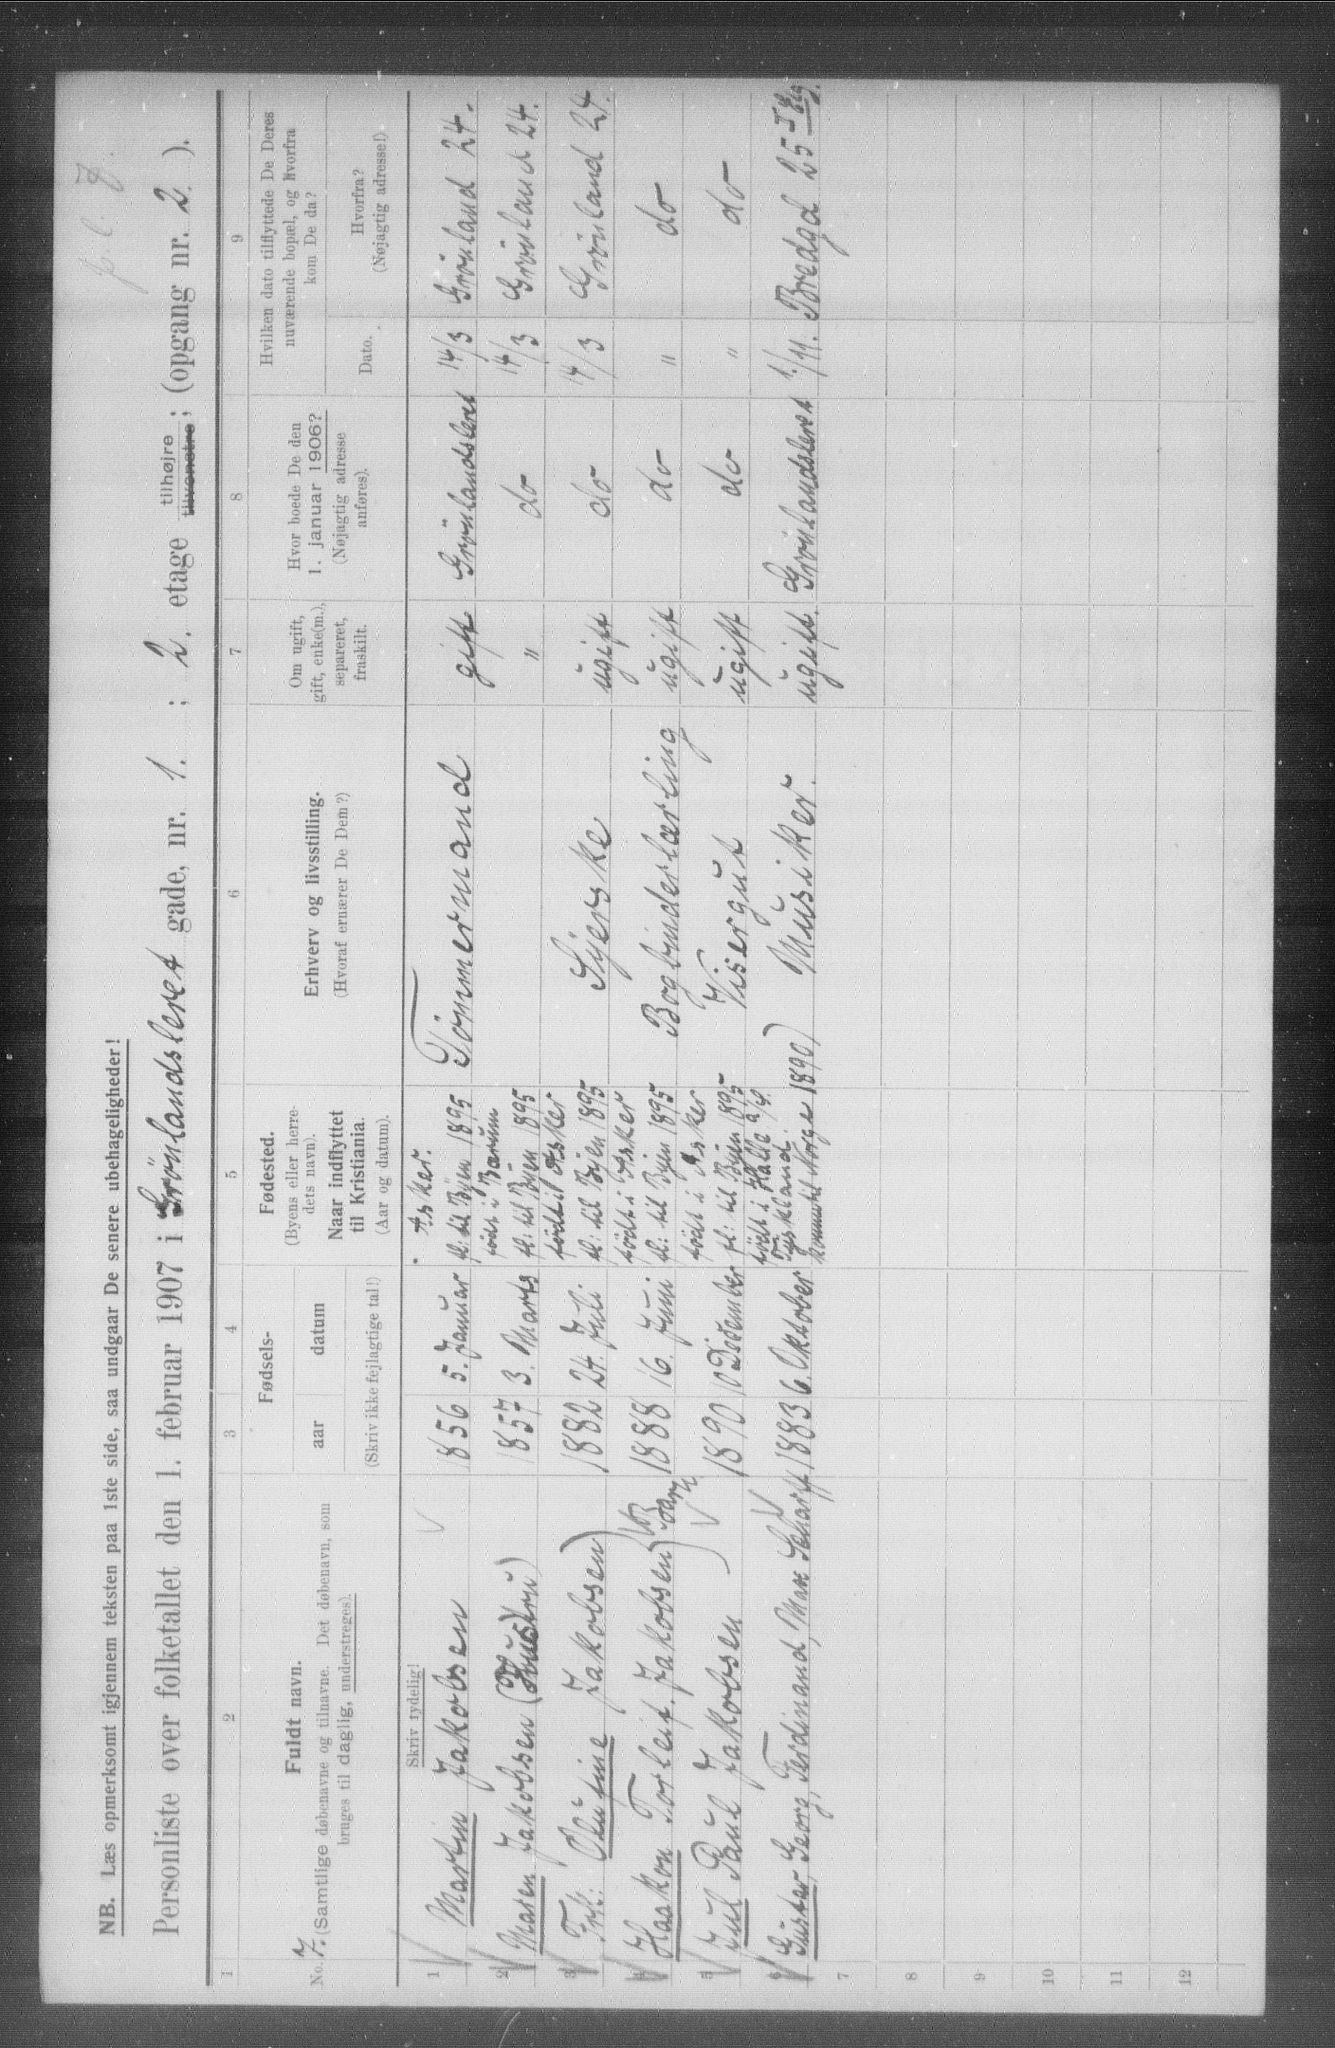 NB. Læs opmerksomt igjennem teksten paa 1ste side, saa undgaar De senere ubehageligheder!
Personliste over folketallet den 1. februar 1907 i Grönlandsleret gade, nr. 1. ; 2. etage tilhøjre tilvenstre; (opgang nr. 2 ).
1 2 3 4 5 6 7 8 9
No. 7. Fuldt navn.
(Samtlige døbenavne og tilnavne. Det døbenavn, som
bruges til daglig, understreges).
Fødsels-
aar datum
(Skriv ikke fejlagtige tal!)
Fødested.
(Byens eller herre-
dets navn).
Naar indflyttet
til Kristiania.
(Aar og datum).
Erhverv og livsstilling.
(Hvoraf ernærer De Dem?)
Om ugift,
gift, enke(m.),
separeret,
fraskilt.
Hvor boede De den
1. januar 1906?
(Nøjagtig adresse
anføres).
Hvilken dato tilflyttede De Deres
nuværende bopæl, og hvorfra
kom De da?
Dato.
Hvorfra?
(Nøjagtig adresse!)
Skriv tydelig!
1 Martin Jakobsen 1856 5. Januar Asker.
fl: til Byen 1895 Tömmermand gift Grönlandsleret 14/3 Grönland 24.
2 Maren Jakobsen (Hustru) 1857 3. Marts födt i Bærum
fl: til Byen 1895 " do 14/3 Grönland 24.
3 Frk: Olufine Jakobsen) 1882 24. Juli födt i Asker
fl: til Byen 1895 Syerske ugift do 14/3 Grönland 24.
4 Haakon Torleif Jakobsen) Børn 1888 16. Juni födt i Asker
fl: til Byen 1895 Bogbinderlærling ugift do " do
5 Jul Paul Jakobsen ) 1890 10 Desember födt i Asker
fl: til Byen 1895 Visergut ugift do " do
6 Gustav, Georg, Ferdinand, Max Scharff 1883 6. Oktober födt i Halle a/S.
Tyskland.
kommet til Norge 1890) Musiker. ugift. Grönlandsleret 1/11. Bredgd 25
7
8
9
10
11
12